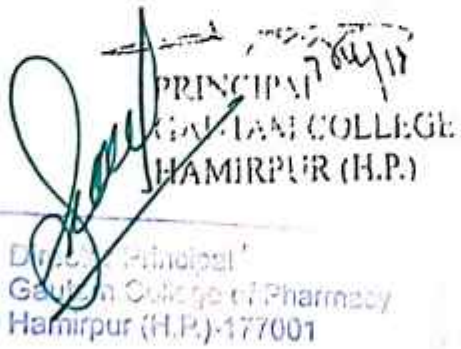 PRINCIPAL
GAUTAM COLLEGE
HAMIRPUR (H.P.)
Director Principal
Gautam College of Pharmacy
Hamirpur (H.P.)-177001